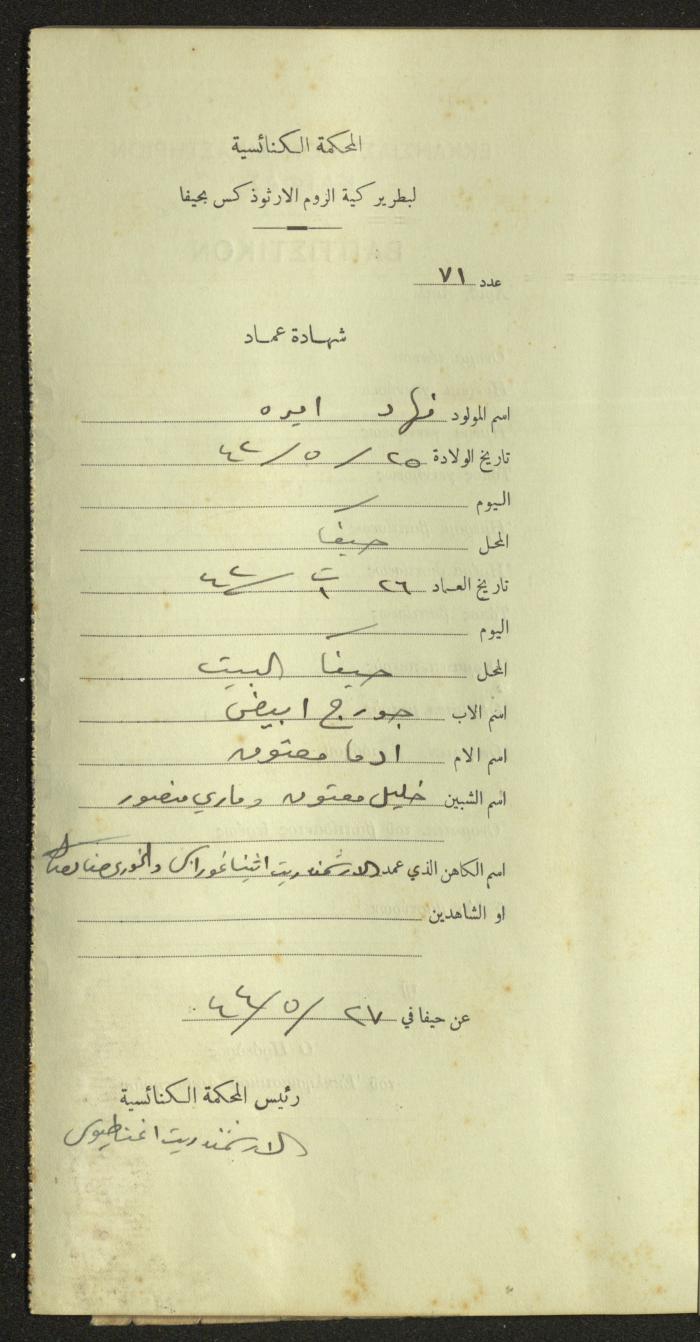 المحكمة الكنائسية
لبطريركية الروم الارثوذكس بحيفا
عدد ٧١
شهادة عماد
اسم المولود فهاد
تاريخ الولادة ٢٥ / ٥ / ٤٢
اليوم
المحل حيفا
تاريخ العماد ٢٦ ت١ / ٤٢
اليوم
المحل حيفا البيت
اسم الاب جورج ابيض
اسم الام ادما معتوق
اسم الشبين خليل معتوق وماري منصور
اسم الكاهن الذي عمد الارشمندريت اثيناغوراس والخوري حنا
او الشاهدين
عن حيفا في ٢٧ / ٥ / ٤٤
رئيس المحكمة الكنائسية
الارشمندريت اغناطيوس